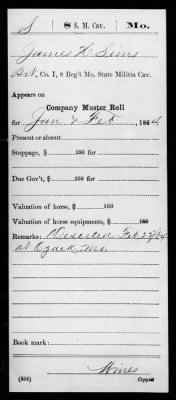 S 8 S. M. Cav. Mo.
James H Sims
Pvt, Co. I, 8 Reg't Mo. State Militia Cav.
Appears on
Company Muster Roll
for Jan & Feb, 1864
Present or absent
Stoppage, $ 100 for
Due Gov't, $ 100 for
Valuation of horse, $ 100
Valuation of horse equipments, $ 100
Remarks: Deserted Feb 27/64
at Ozark, Mo.
Book mark:
Wines
(858) Copyist